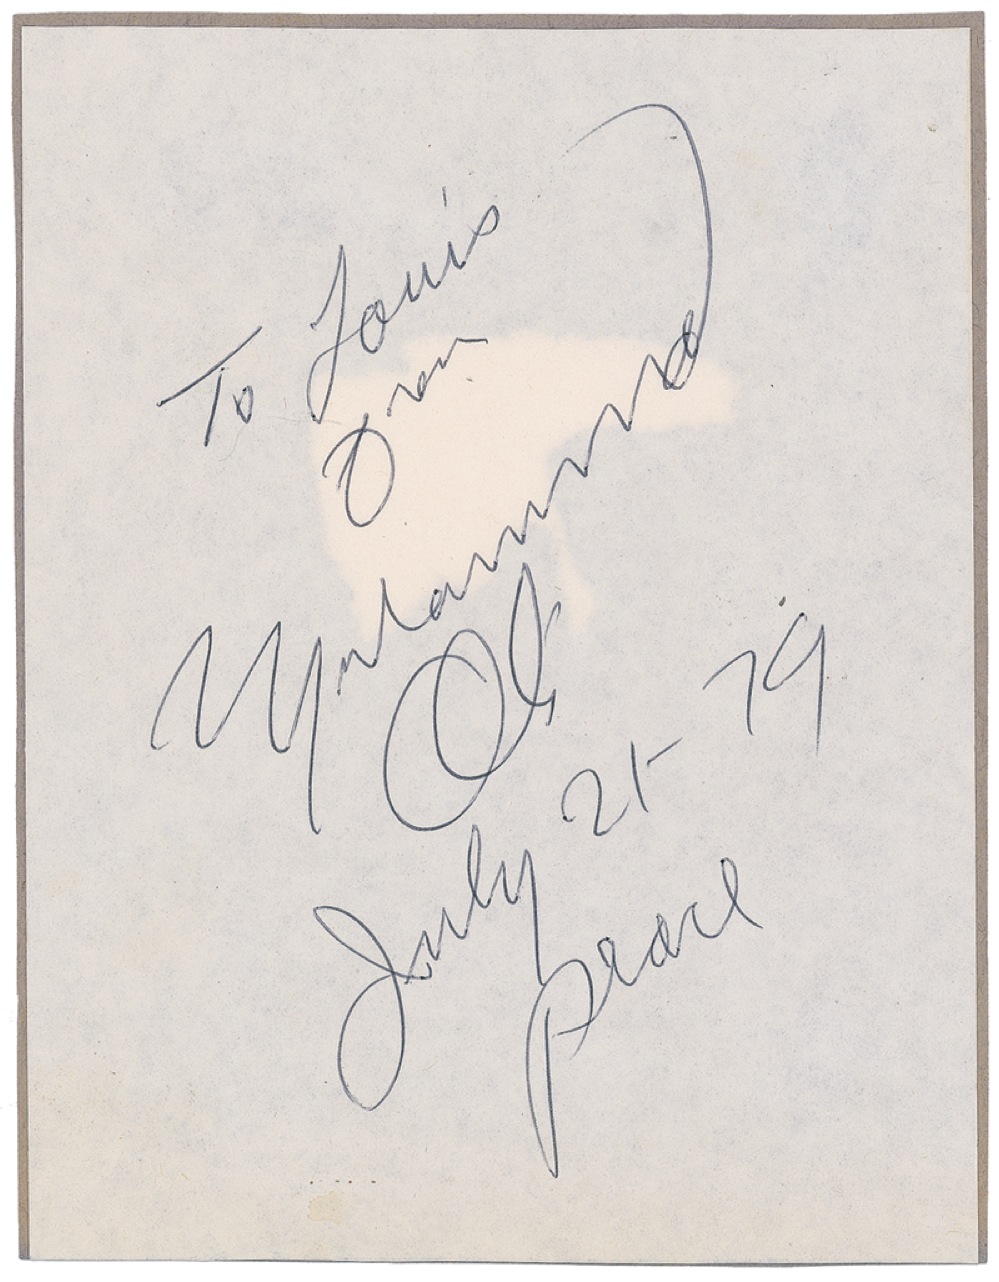 To Louis
From
Muhammad
Ali
July 21- 79
peace